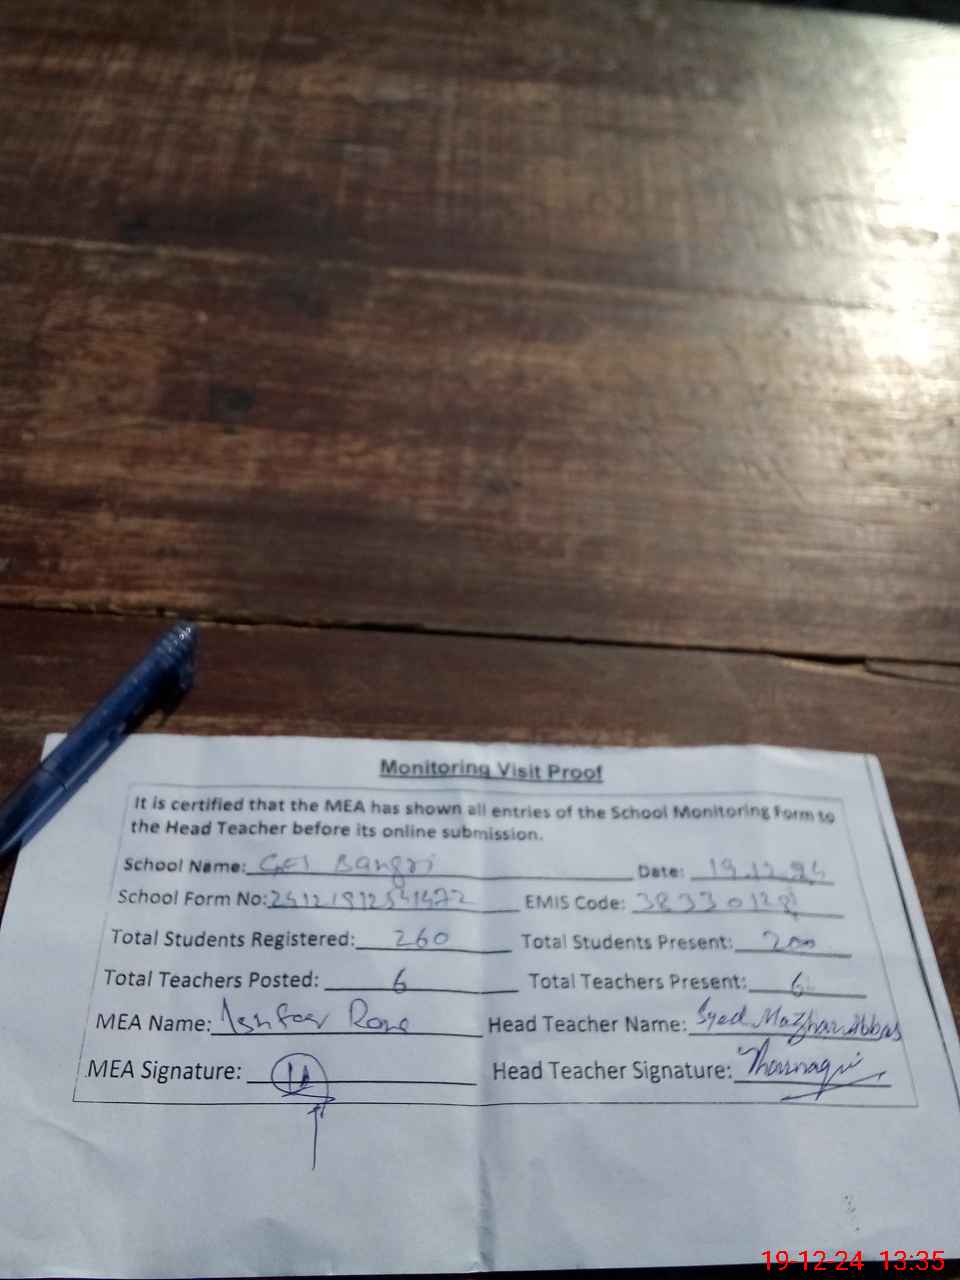 Monitoring Visit Proof
It is certified that the MEA has shown all entries of the School Monitoring Form to
the Head Teacher before its online submission.
School Name: Bangri Date: 19.12.24
School Form No: EMIS Code: 38330128
Total Students Registered: 260 Total Students Present: 200
Total Teachers Posted: 6 Total Teachers Present: 6
MEA Name: Head Teacher Name: Syed Mazhar Abbas
MEA Signature: Head Teacher Signature:
19-12-24 13:35